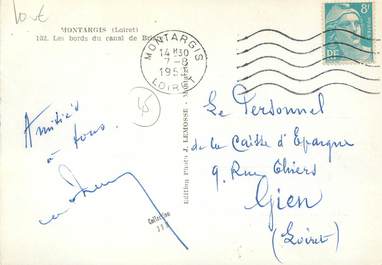 MONTARGIS (Loiret)
102. Les bords du canal de
MONTARGIS
14 H 30
7-8
LOIRET
8F
Amitiés
à tous.
45
Edition Photo J. LEMOSSE - Montargis
Le Personnel
de la Caisse d'Epargne
9, Rue Thiers
Gien
(Loiret)